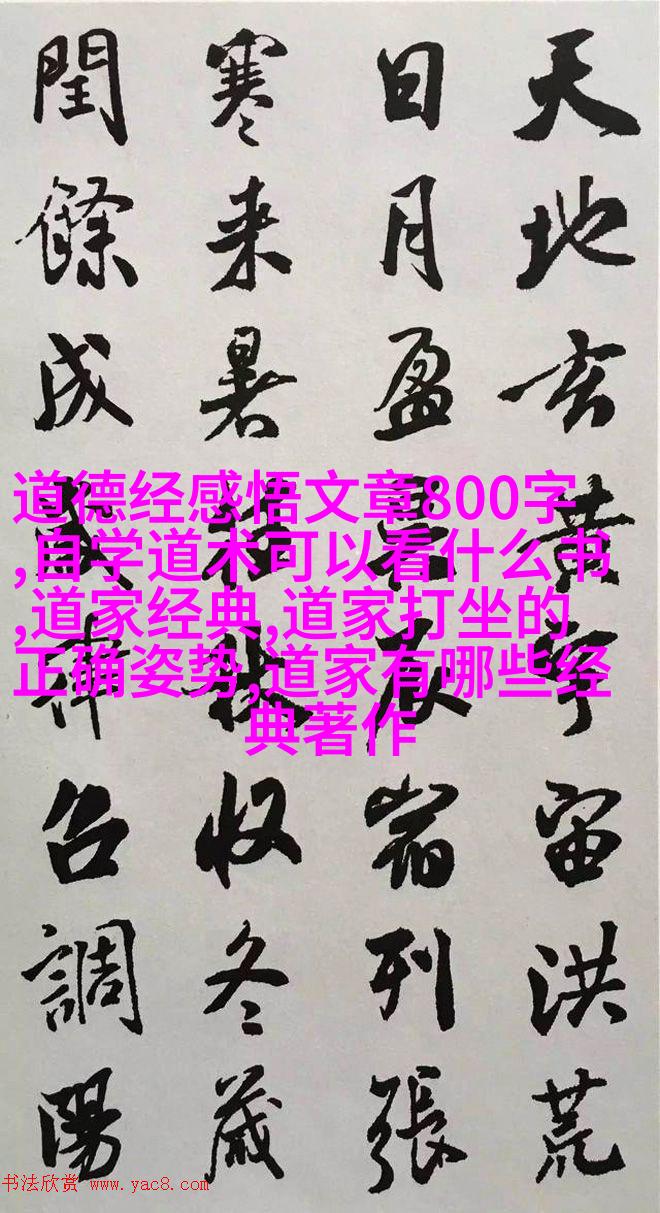 天地玄黄宇宙洪荒
日月盈昃辰宿列張
寒来暑往秋收冬蔵
閏餘成歲律召調陽
道德经感悟文章800字
,自学道术可以看什么书
,道家经典,道家打坐的
正确姿势,道家有哪些经
典著作
书法欣赏 www.yac8.com